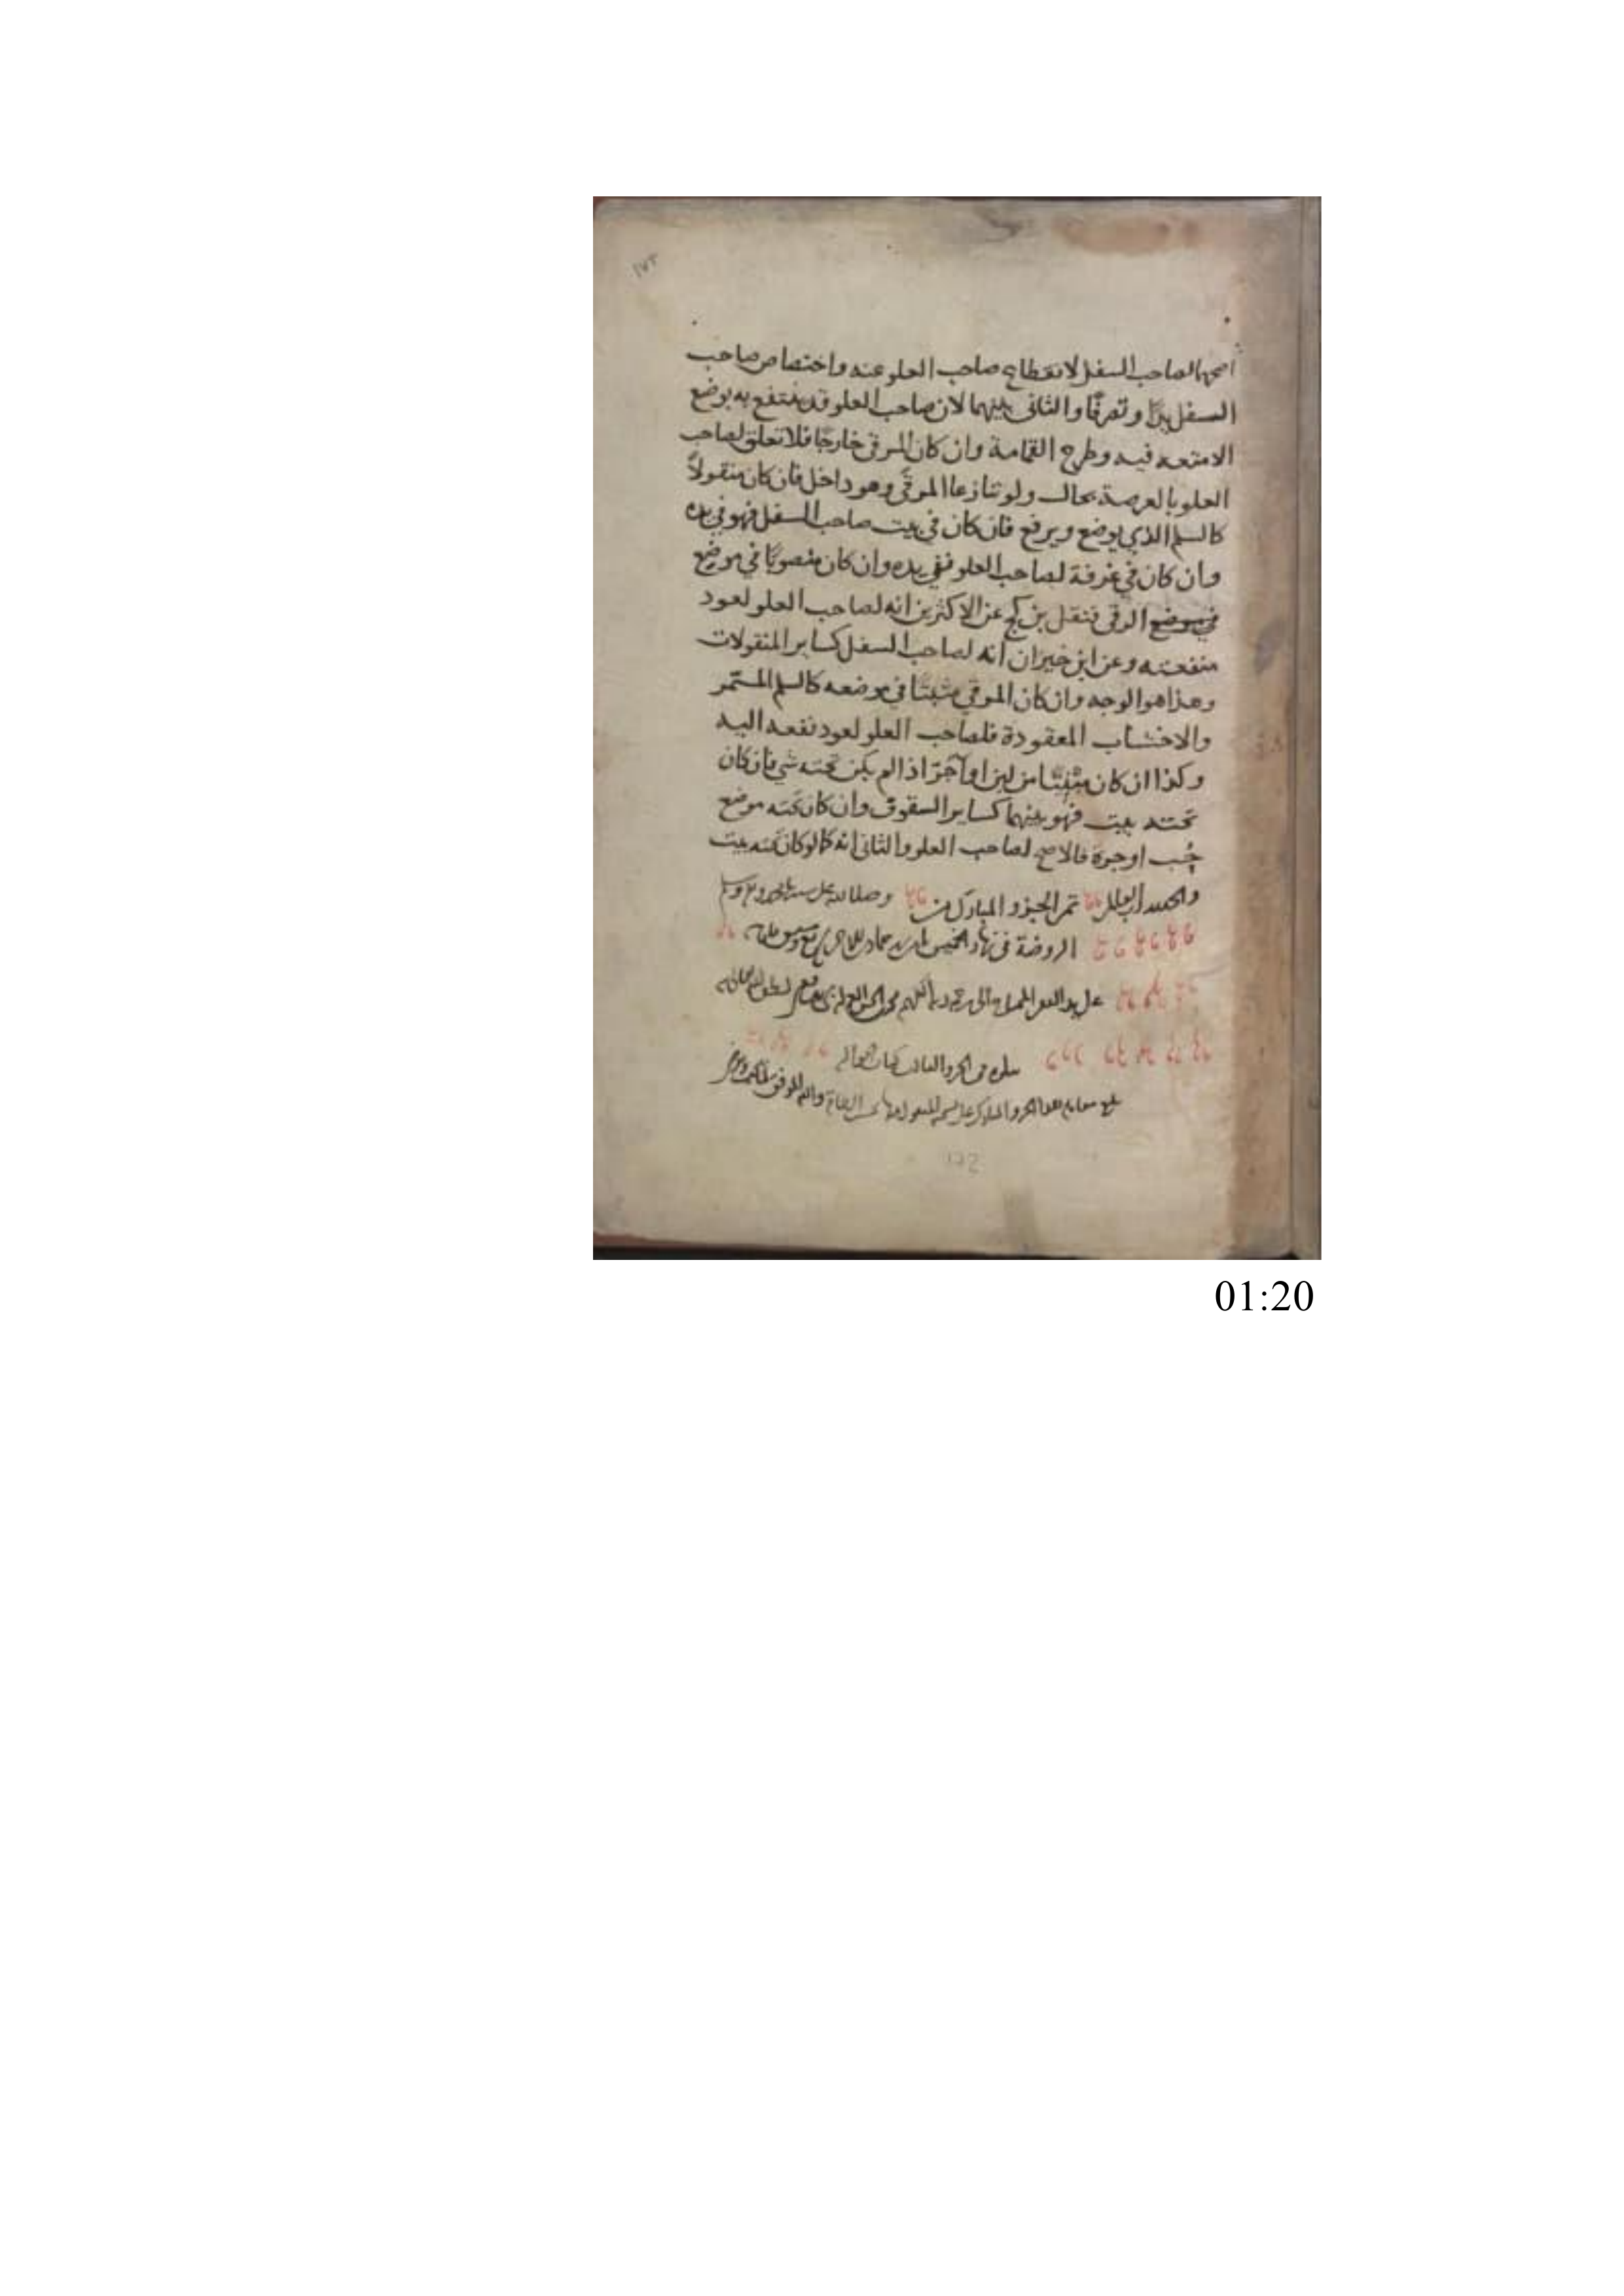 ١٧٢
اصحهما لصاحب السفل لانقطاع صاحب العلو عنه واختصاص صاحب
السفل يدًا وتصرفًا والثاني بينهما لان صاحب العلو قد ينتفع به بوضع
الامتعه فيه وطرح القمامة وان كان المرقى خارجًا فلا تعلق لصاحب
العلو بالعرصة بحال ولو تنازعا المرقى وهو داخل فان كان منقولاً
كالسلم الذي يوضع ويرفع فان كان في بيت صاحب السفل فهو في يده
وان كان في غرفة لصاحب العلو ففي يده وان كان منصوبًا في موضع
في موضع الرقى فنقل بن كج عن الاكثرين انه لصاحب العلو لعود
منفعته وعن ابن خيران انه لصاحب السفل كساير المنقولات
وهذا هو الوجه وان كان المرقى مثبتًا في موضعه كالسلم المستمر
والاخشاب المعقودة فلصاحب العلو لعود نفعه اليه
وكذا ان كان مثبتًا من لبن او آجر اذا لم يكن تحته شي فان كان
تحته بيت فهو بينهما كساير السقوف وان كان تحته موضع
جُب او جرة فالاصح لصاحب العلو والثاني انه كما لو كان تحته بيت
والحمد لله تم الجزو المبارك من وصلى الله على سيدنا محمد وسلم
الروضة في نهار الخميس
على يد
يتلوه في الجزو الثالث كتاب
بلغ مقابلة هذا الجزو المبارك على والله الموفق
172
01:20